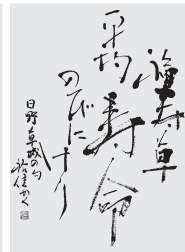 福寿草
平均寿命
のびにけり
日野草城の句
かく